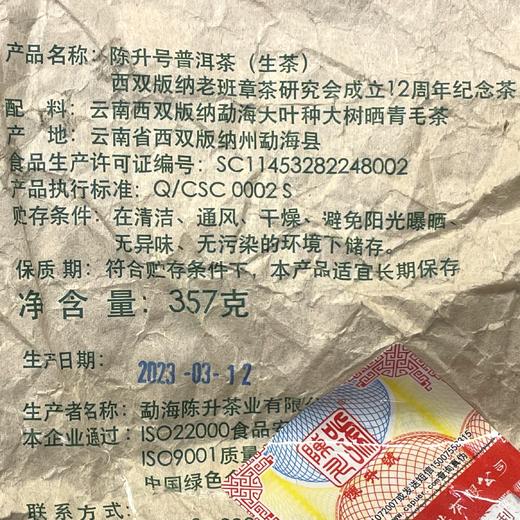 产品名称：陈升号普洱茶（生茶）
西双版纳老班章茶研究会成立12周年纪念茶
配 料：云南西双版纳勐海大叶种大树晒青毛茶
产 地：云南省西双版纳州勐海县
食品生产许可证编号：SC11453282248002
产品执行标准：Q/CSC 0002 S
贮存条件：在清洁、通风、干燥、避免阳光曝晒、
无异味、无污染的环境下储存。
保质期：符合贮存条件下，本产品适宜长期保存
净含量：357克
生产日期：
2023-03-12
生产者名称：勐海陈升茶业有限公
本企业通过：ISO22000食品安
ISO9001质量
中国绿色
联系方式：